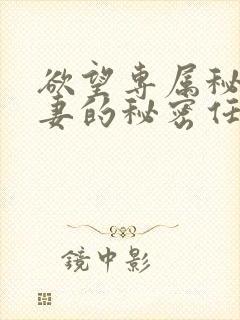 欲望专属秘
妻的秘密任
镜中影